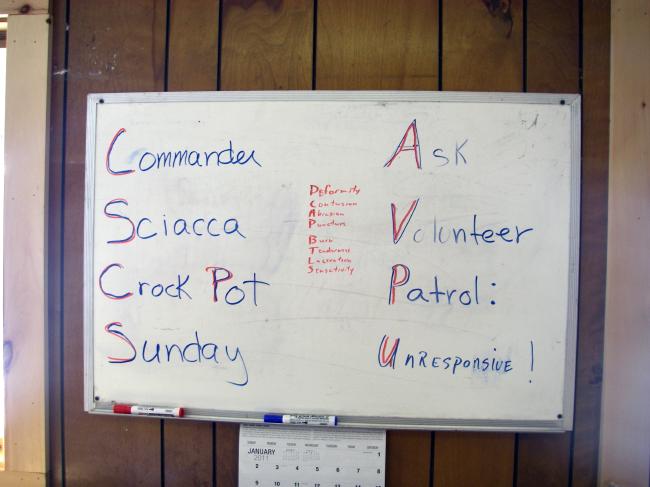 Commander
Sciacca
Crock Pot
Sunday
Deformity
Contusion
Abrasion
Puncture
Burn
Tenderness
Laceration
Sensitivity
Ask
Volunteer
Patrol:
Unresponsive!
JANUARY
2011
1
2 3 4 5 6 7 8
9 10 11 12 13 14 15